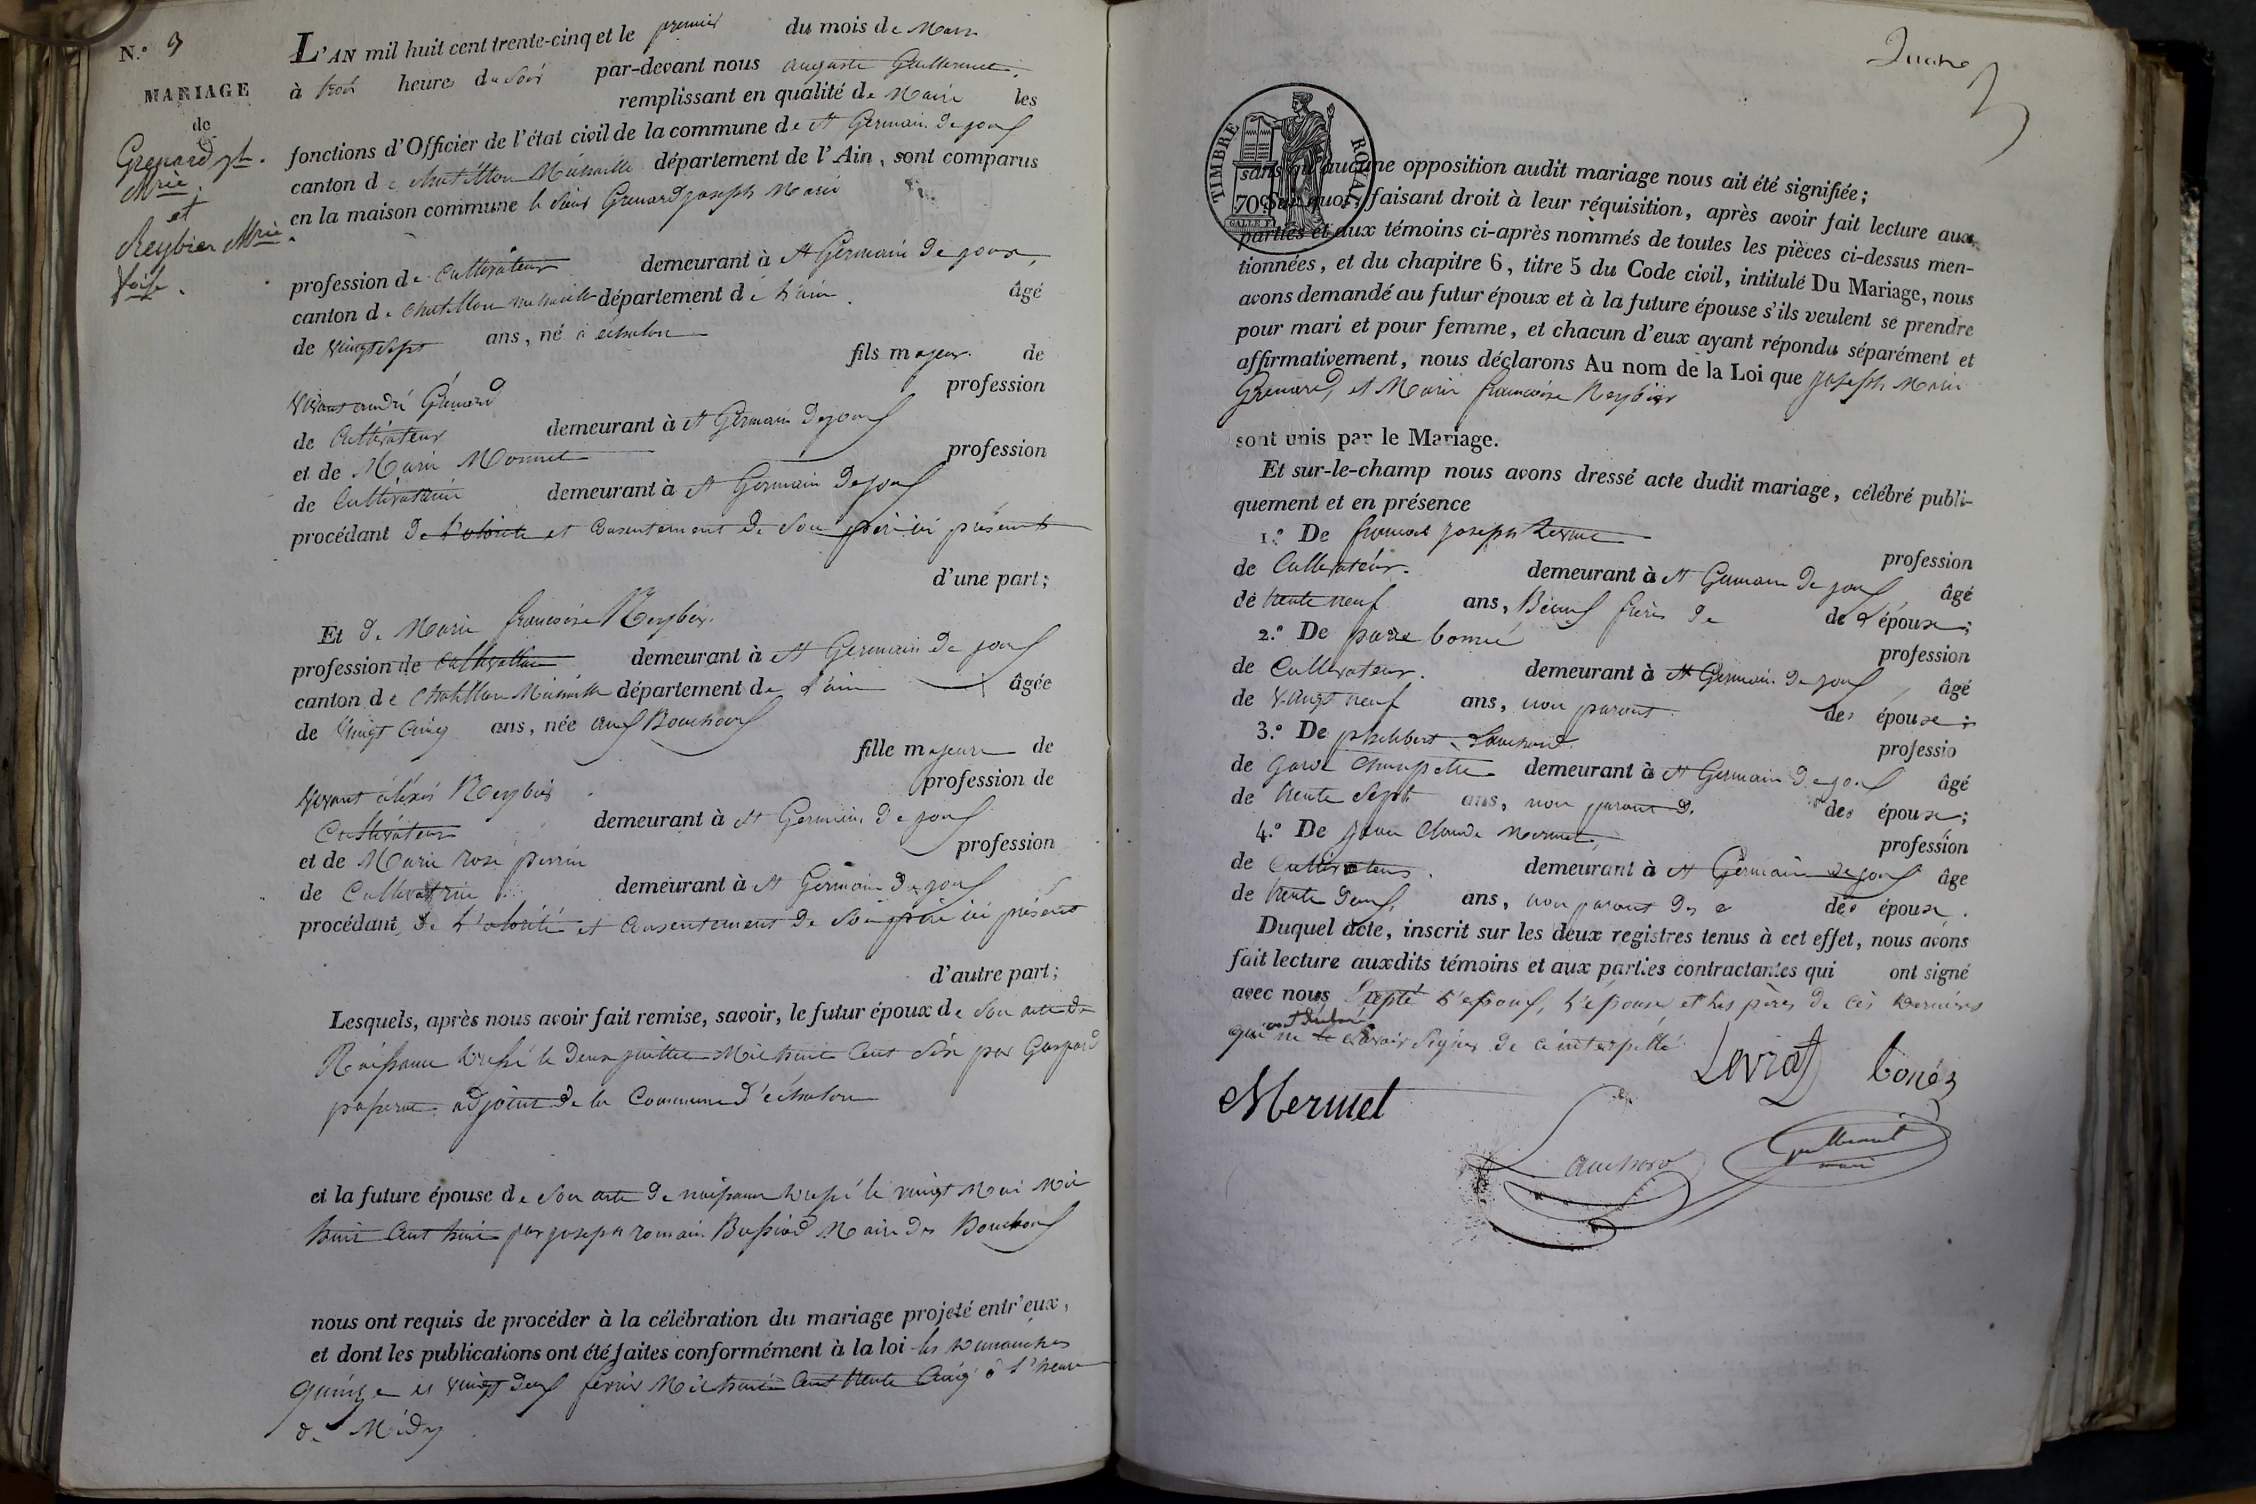 N.° 3
MARIAGE
de
Grenard jh.
Mrie.
et
Reybier Mrie
foise.
L'AN mil huit cent trente-cinq et le premier du mois de Mars
à trois heures du soir par-devant nous auguste Guillermet,
remplissant en qualité de Maire les
fonctions d'Officier de l'état civil de la commune de St Germain de joux
canton de chatillon Michaille département de l'Ain, sont comparus
en la maison commune le sieur Grenard joseph Marie
profession de Cultivateur demeurant à St Germain de joux,
canton de chatillon michaille département de l'ain âgé
de vingt sept ans, né à échalon
fils majeur de
vivant andré Grenard profession
de Cultivateur demeurant à St Germain de joux
et de Marie Monnet profession
de Cultivatrice demeurant à St Germain de joux
procédant de l'otorité et consentement de son père ici présent
d'une part;
Et de Marie francoise Reybier.
profession de cultivatrice demeurant à St Germain de joux
canton de Chatillon Michaille département de l'ain âgée
de vingt cinq ans, née aux Bouchoux
fille majeure de
vivant aléxis Reybier profession de
Cultivateur demeurant à St Germain de joux
et de Marie rose perrin profession
de Cultivatrice demeurant à St Germain de joux
procédant de l'otorité et consentement de son père ici présent
d'autre part;
Lesquels, après nous avoir fait remise, savoir, le futur époux de son acte de
Naissance dressé le deux juillet Mil huit cent sept par Gaspard
adjoint de la Commune d'échalon
et la future épouse de son acte de naissance dressé le vingt Mai Mil
huit cent huit par joseph romain Bussiod Maire des Bouchoux
nous ont requis de procéder à la célébration du mariage projeté entr'eux,
et dont les publications ont été faites conformément à la loi les dimanches
quinze et vingt deux fevrier Mil huit cent trente cinq à l'heure
de Midy
TIMBRE ROYAL
70c
sans qu'aucune opposition audit mariage nous ait été signifiée;
Sur quoi, faisant droit à leur réquisition, après avoir fait lecture aux
parties et aux témoins ci-après nommés de toutes les pièces ci-dessus men-
tionnées, et du chapitre 6, titre 5 du Code civil, intitulé Du Mariage, nous
avons demandé au futur époux et à la future épouse s'ils veulent se prendre
pour mari et pour femme, et chacun d'eux ayant répondu séparément et
affirmativement, nous déclarons Au nom de la Loi que joseph Marie
Grenard, et Marie francoise Reybier
sont unis par le Mariage.
Et sur-le-champ nous avons dressé acte dudit mariage, célébré publi-
quement et en présence
1.° De francois joseph Levrat
profession
de Cultivateur. demeurant à St Germain de joux âgé
de trente neuf ans, Beaux frère de de l'épouse;
2.° De bonéz
profession
de Cultivateur. demeurant à St Germain de joux, âgé
de vingt neuf ans, non parent des épouse;
3.° De philibert Lauchard.
professio
de garde champetre demeurant à St Germain de joux âgé
de trente sept ans, non parant d. des épouse;
4.° De jean Claude Mermet,
profession
de Cultivateur. demeurant à St Germain de joux âge
de trente deux, ans, non parant des épouse.
Duquel acte, inscrit sur les deux registres tenus à cet effet, nous avons
fait lecture auxdits témoins et aux parties contractantes qui ont signé
avec nous excepté l'époux, l'épouse, et les pères de ces derniers
qui ont declaré ne le savoir signer de ce interpellé
Levrat bonéz
Mermet
Lauchard Guillermet
maire